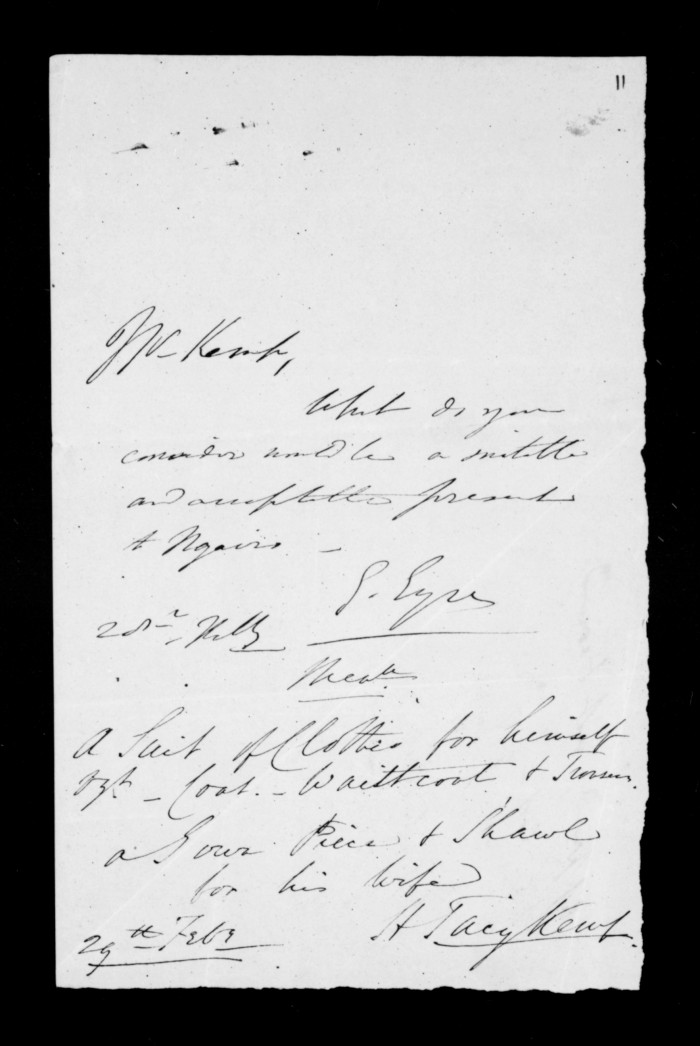 11
Mr Kemp,
What do you
consider would be a suitable
and acceptable present
to Ngairo —
E. Eyre
28th Feby
A Suit of Clothes for himself
vizt — Coat — Waistcoat & Trousers.
a Gown Piece & Shawl
for his Wife
29th Feby H Tacy Kemp.